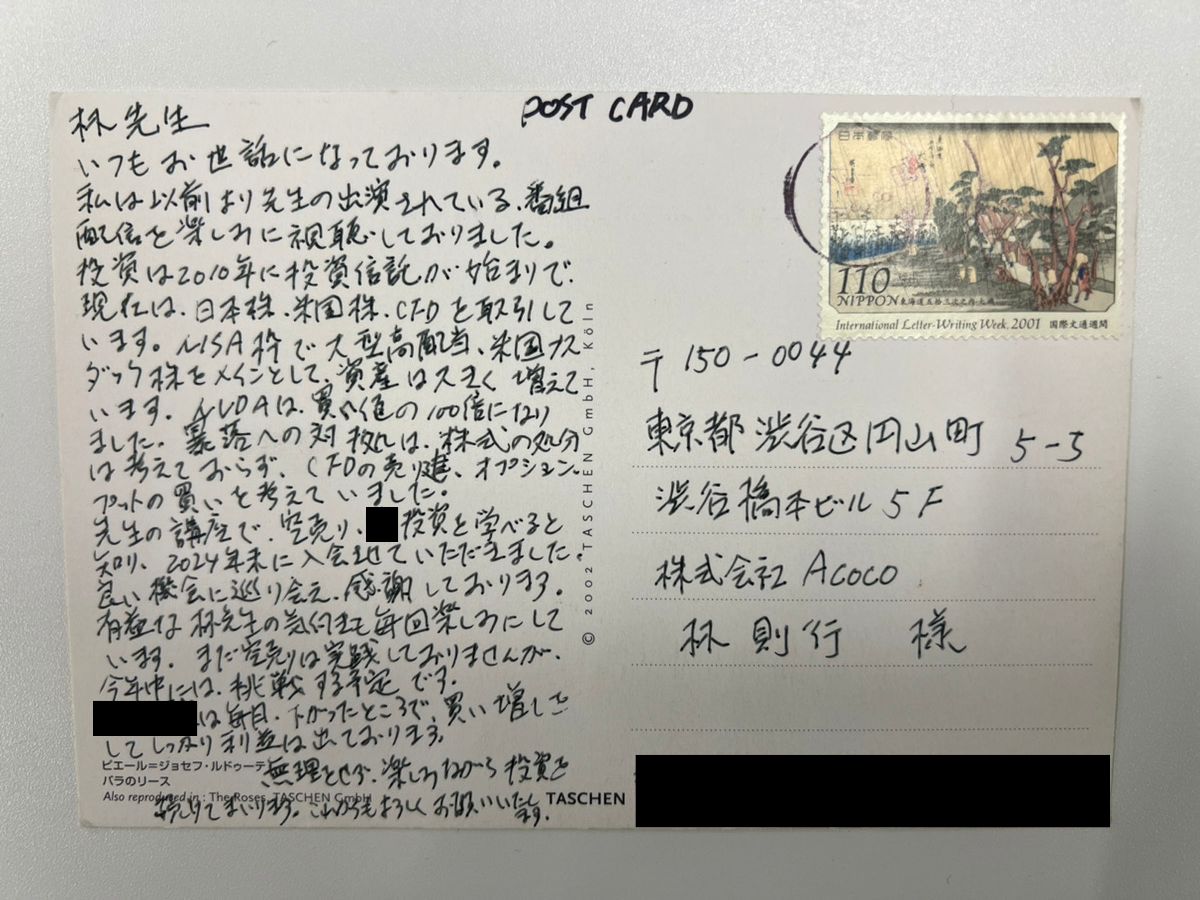 POST CARD
林先生
いつもお世話になっております。
私は以前より先生の出演されている、番組
配信を楽しみに視聴しておりました。
投資は2010年に投資信託が始まりで、
現在は、日本株、米国株、CFDを取引して
います。NISA枠で大型高配当、米国ナス
ダック株をメインとして、資産は大きく増えて
います。NVDAは、買い値の100倍になり
ました。暴落への対処は、株式の処分
は考えておらず、CFDの売り建、オプション、
プットの買いを考えていました。
先生の講座で、空売り、投資を学べると
知り、2024年末に入会させていただきました。
良い機会に巡り会え、感謝しております。
有益な林先生の気付きも毎回楽しみにして
います。まだ空売りは実践しておりませんが、
今年中には、挑戦する予定です。
は毎日、下がったところで、買い増しを
してしっかり利益は出ております。
無理とせず、楽しみながら投資を
続けてまいります。これからもよろしくお願いいたします。
ピエール=ジョセフ・ルドゥーテ
バラのリース
Also reproduced in: The Roses, TASCHEN GmbH
© 2002 TASCHEN GmbH, Köln
TASCHEN
日本郵便
110
NIPPON 東海道五拾三次之内・大磯
International Letter-Writing Week, 2001 国際文通週間
〒150-0044
東京都渋谷区円山町 5-5
渋谷橋本ビル5F
株式会社Acoco
林 則行 様